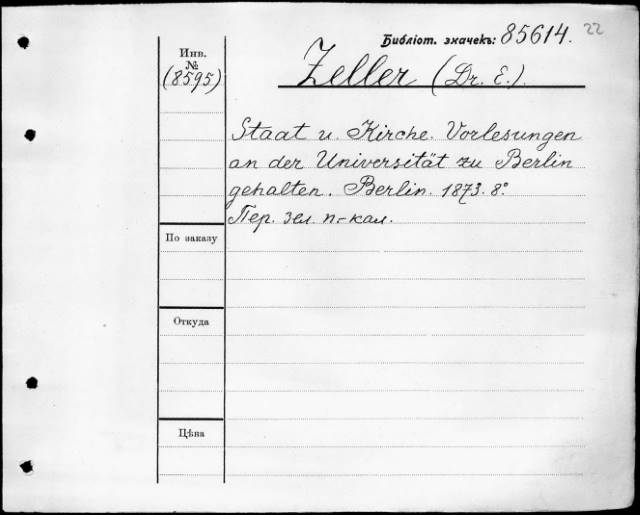 Библіот. значекъ: 85614. 22
Инв.
№
(8595)
Zeller (Dr. E.).
Staat u. Kirche. Vorlesungen
an der Universität zu Berlin
gehalten. Berlin. 1873. 8°.
Пер. зел. п.-кал.
По заказу
Откуда
Цѣна